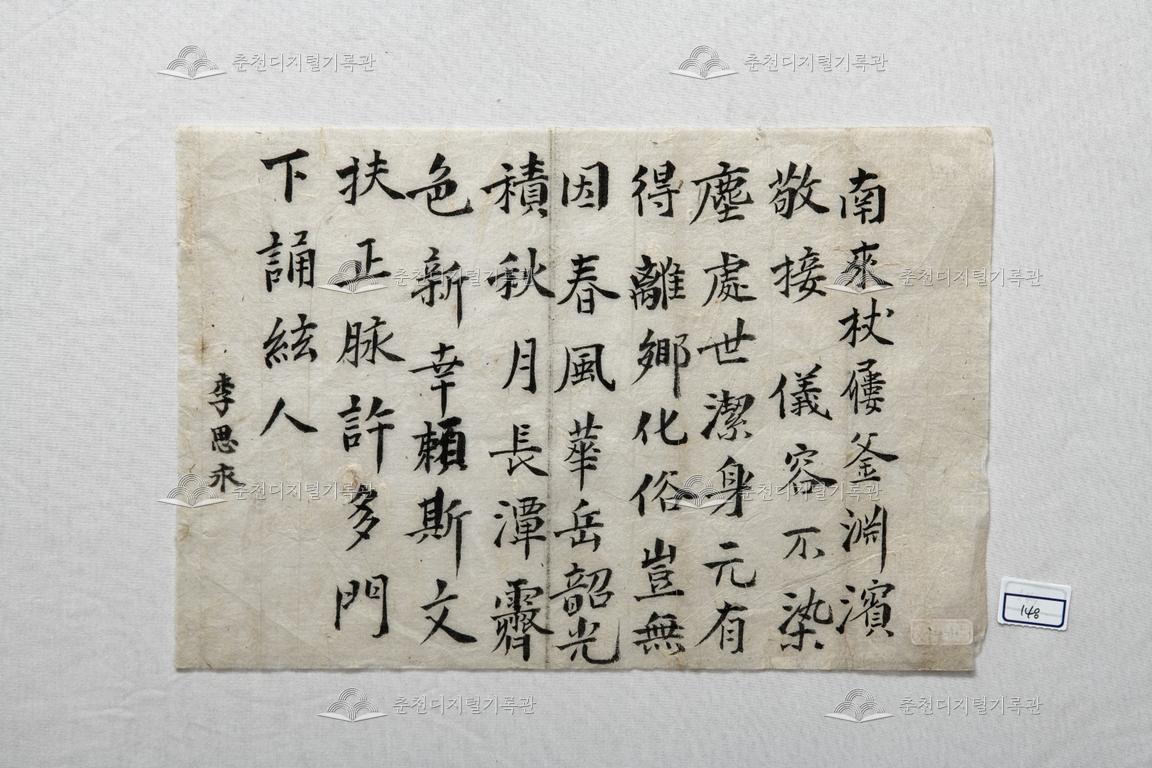 춘천디지털기록관
춘천디지털기록관
南來杖屨釜淵濱
敬接 儀容不染
塵處世潔身元有
得離鄉化俗豈無
因春風華岳韶光
積秋月長潭霽
色新幸賴斯文
扶正脉許多門
下誦絃人
李思永
춘천디지털기록관
춘천디지털기록관
춘천디지털기록관
춘천디지털기록관
춘천디지털기록관
148
춘천디지털기록관
춘천디지털기록관